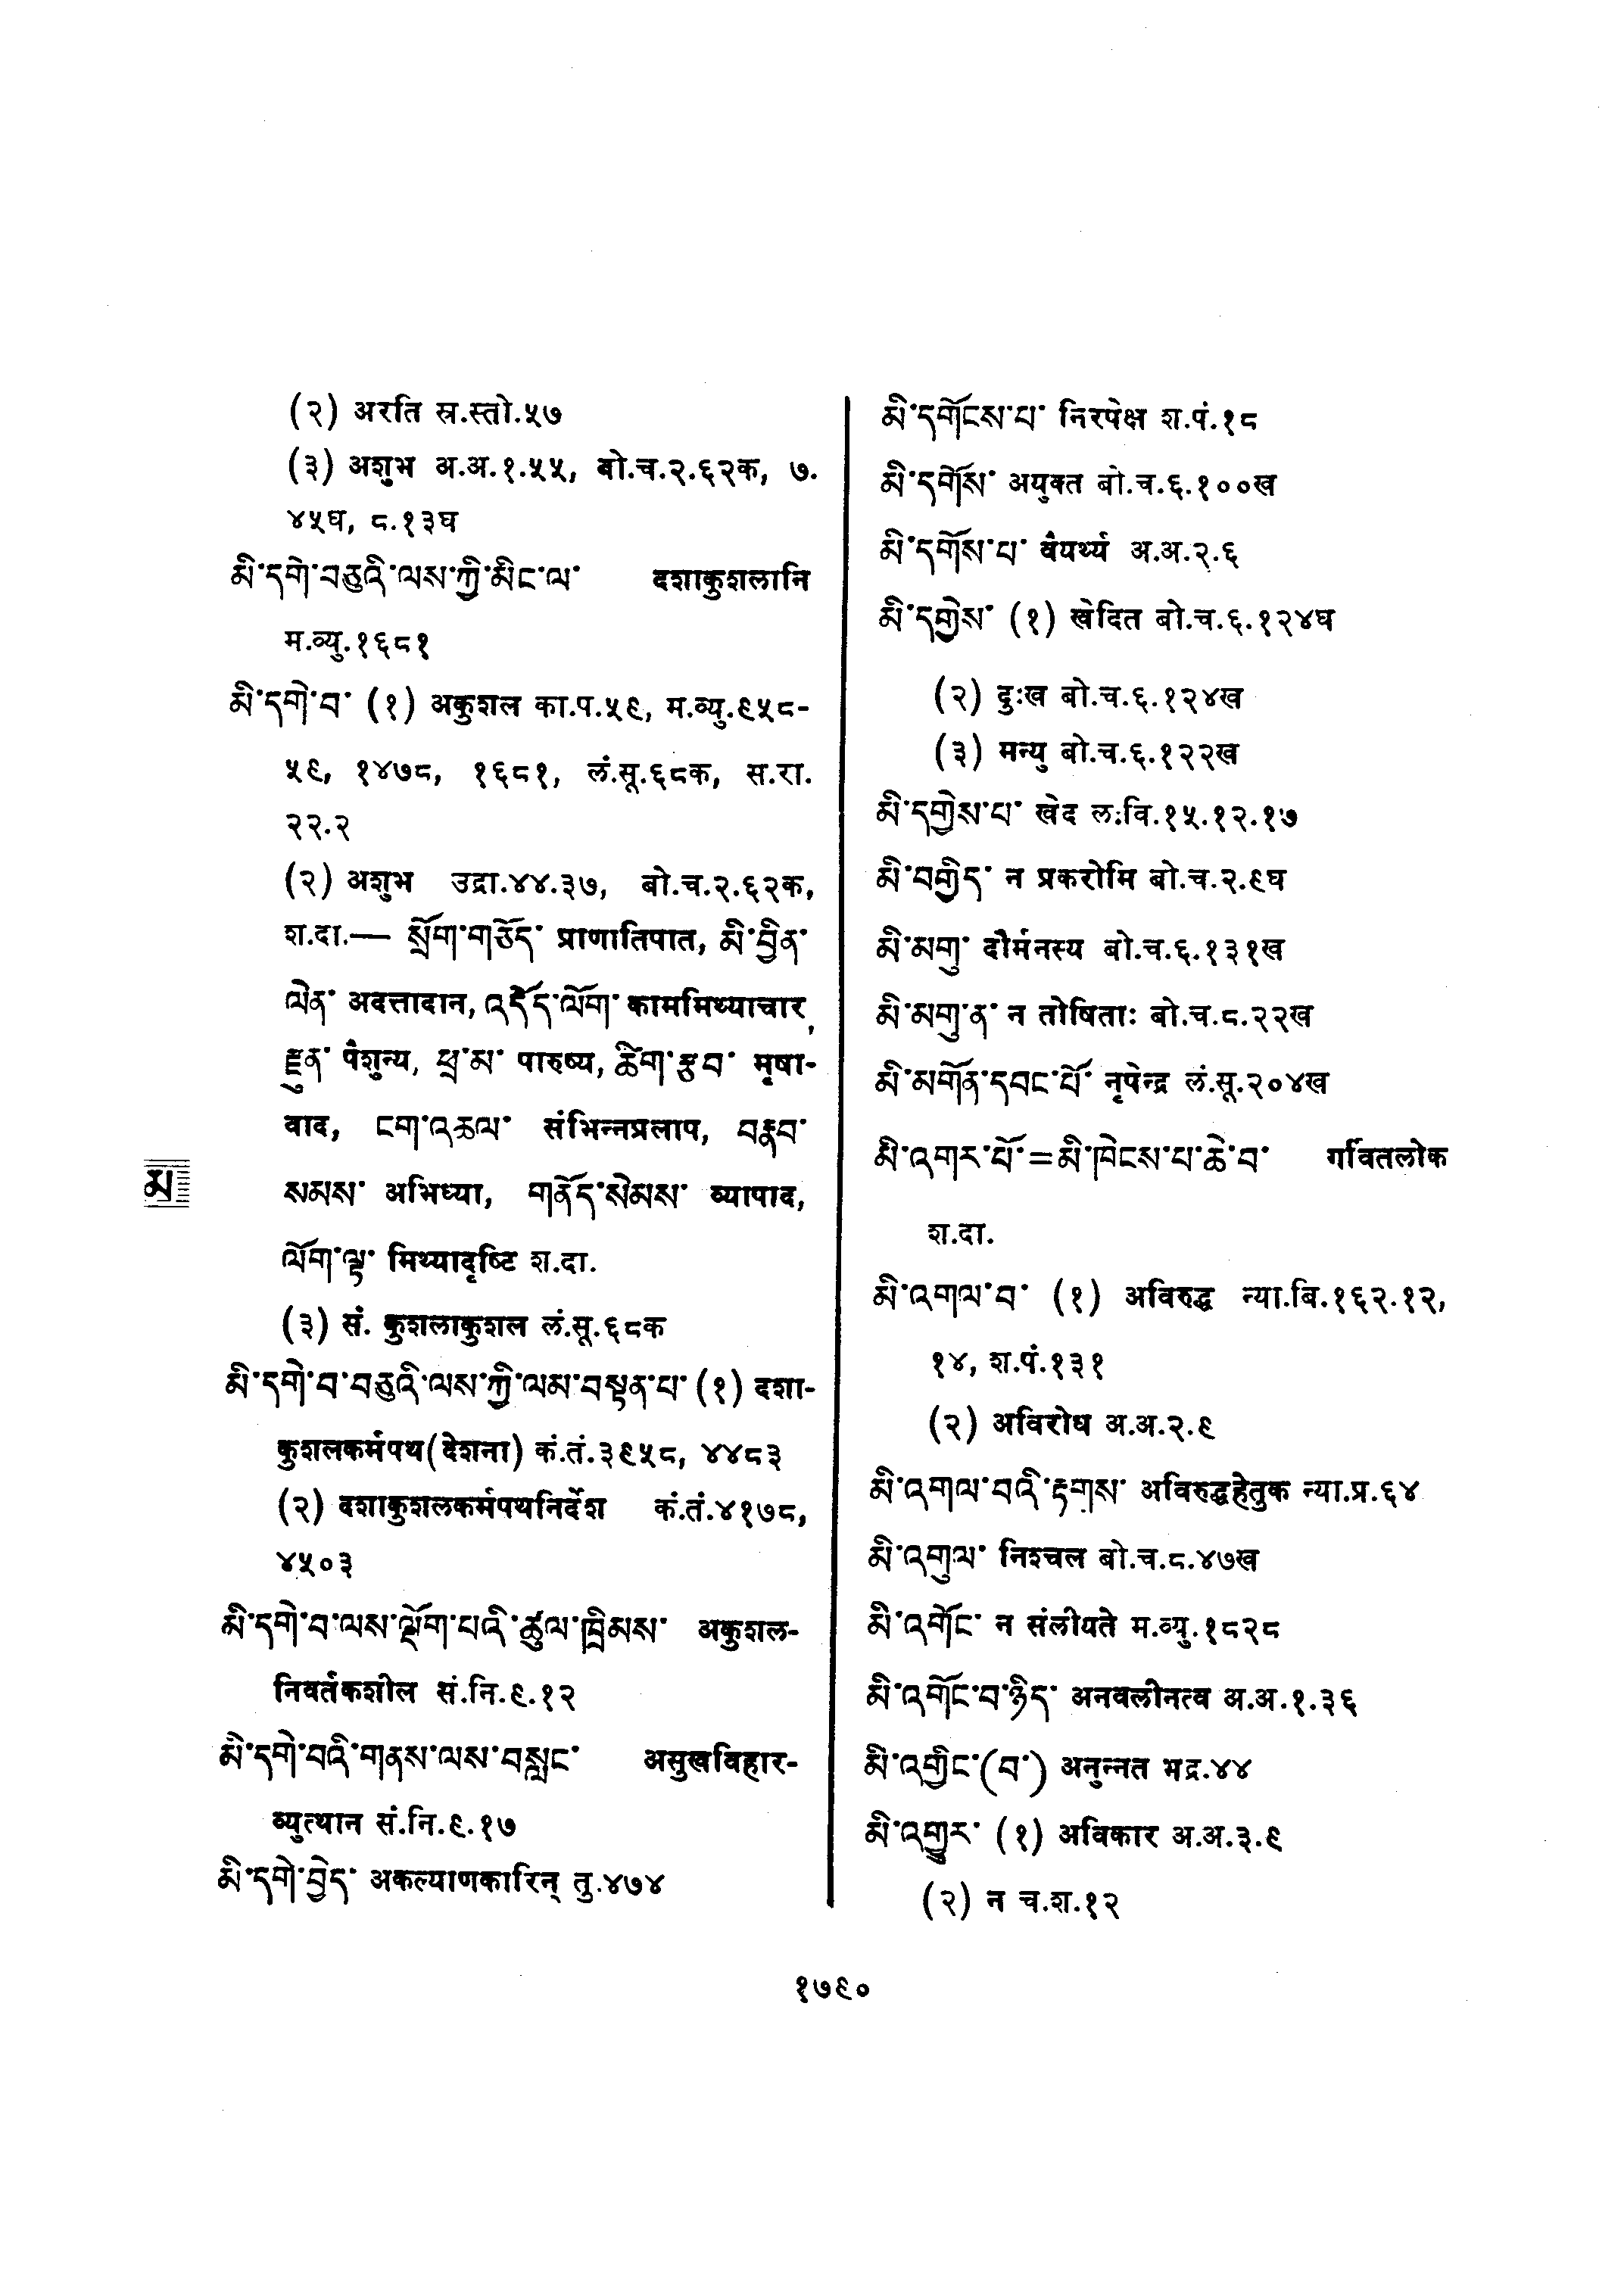 (२) अरति स्र.स्तो.५७
(३) अशुभ अ.अ.१.५५, बो.च.२.६२क, ७.
४५घ, ८.१३घ
མི་དགེ་བཅུའི་ལས་ཀྱི་མིང་ལ་ दशाकुशलानि
म.व्यु.१६८१
མི་དགེ་བ་ (१) अकुशल का.प.५९, म.व्यु.९५८-
५९, १४७८, १६८१, लं.सू.६८क, स.रा.
२२.२
(२) अशुभ उद्रा.४४.३७, बो.च.२.६२क,
श.दा.— སྲོག་གཅོད་ प्राणातिपात, མི་བྱིན་
ལེན་ अदत्तादान, འདོད་ལོག་ काममिथ्याचार,
རྫུན་ पैशुन्य, ཕྲ་མ་ पारुष्य, ཚིག་རྩུབ་ मृषा-
वाद, ངག་འཆལ་ संभिन्नप्रलाप, བརྣབ་
སེམས་ अभिध्या, གནོད་སེམས་ व्यापाद,
ལོག་ལྟ་ मिथ्यादृष्टि श.दा.
(३) सं. कुशलाकुशल लं.सू.६८क
མི་དགེ་བ་བཅུའི་ལས་ཀྱི་ལམ་བསྟན་པ་ (१) दशा-
कुशलकर्मपथ(देशना) कं.तं.३९५८, ४४८३
(२) दशाकुशलकर्मपथनिर्देश कं.तं.४१७८,
४५०३
མི་དགེ་བ་ལས་ལྡོག་པའི་ཚུལ་ཁྲིམས་ अकुशल-
निवर्तकशील सं.नि.९.१२
མི་དགེ་བའི་གནས་ལས་བསླང་ असुखविहार-
व्युत्थान सं.नि.९.१७
མི་དགེ་བྱེད་ अकल्याणकारिन् तु.४७४
མ
མི་དགོངས་པ་ निरपेक्ष श.पं.१८
མི་དགོས་ अयुक्त बो.च.६.१००ख
མི་དགོས་པ་ वैयर्थ्य अ.अ.२.६
མི་དགྱེས་ (१) खेदित बो.च.६.१२४घ
(२) दुःख बो.च.६.१२४ख
(३) मन्यु बो.च.६.१२२ख
མི་དགྱེས་པ་ खेद ल.वि.१५.१२.१७
མི་བགྱིད་ न प्रकरोमि बो.च.२.९घ
མི་མགུ་ दौर्मनस्य बो.च.६.१३१ख
མི་མགུ་ན་ न तोषिताः बो.च.८.२२ख
མི་མགོན་དབང་པོ་ नृपेन्द्र लं.सू.२०४ख
མི་འགར་པོ་=མི་ཁེངས་པ་ཆེ་བ་ गर्वितलोक
श.दा.
མི་འགལ་བ་ (१) अविरुद्ध न्या.बि.१६२.१२,
१४, श.पं.१३१
(२) अविरोध अ.अ.२.९
མི་འགལ་བའི་རྟགས་ अविरुद्धहेतुक न्या.प्र.६४
མི་འགུལ་ निश्चल बो.च.८.४७ख
མི་འགོང་ न संलीयते म.व्यु.१८२८
མི་འགོང་བ་ཉིད་ अनवलीनत्व अ.अ.१.३६
མི་འགྱིང་(བ་) अनुन्नत भद्र.४४
མི་འགྱུར་ (१) अविकार अ.अ.३.९
(२) न च.श.१२
१७९०